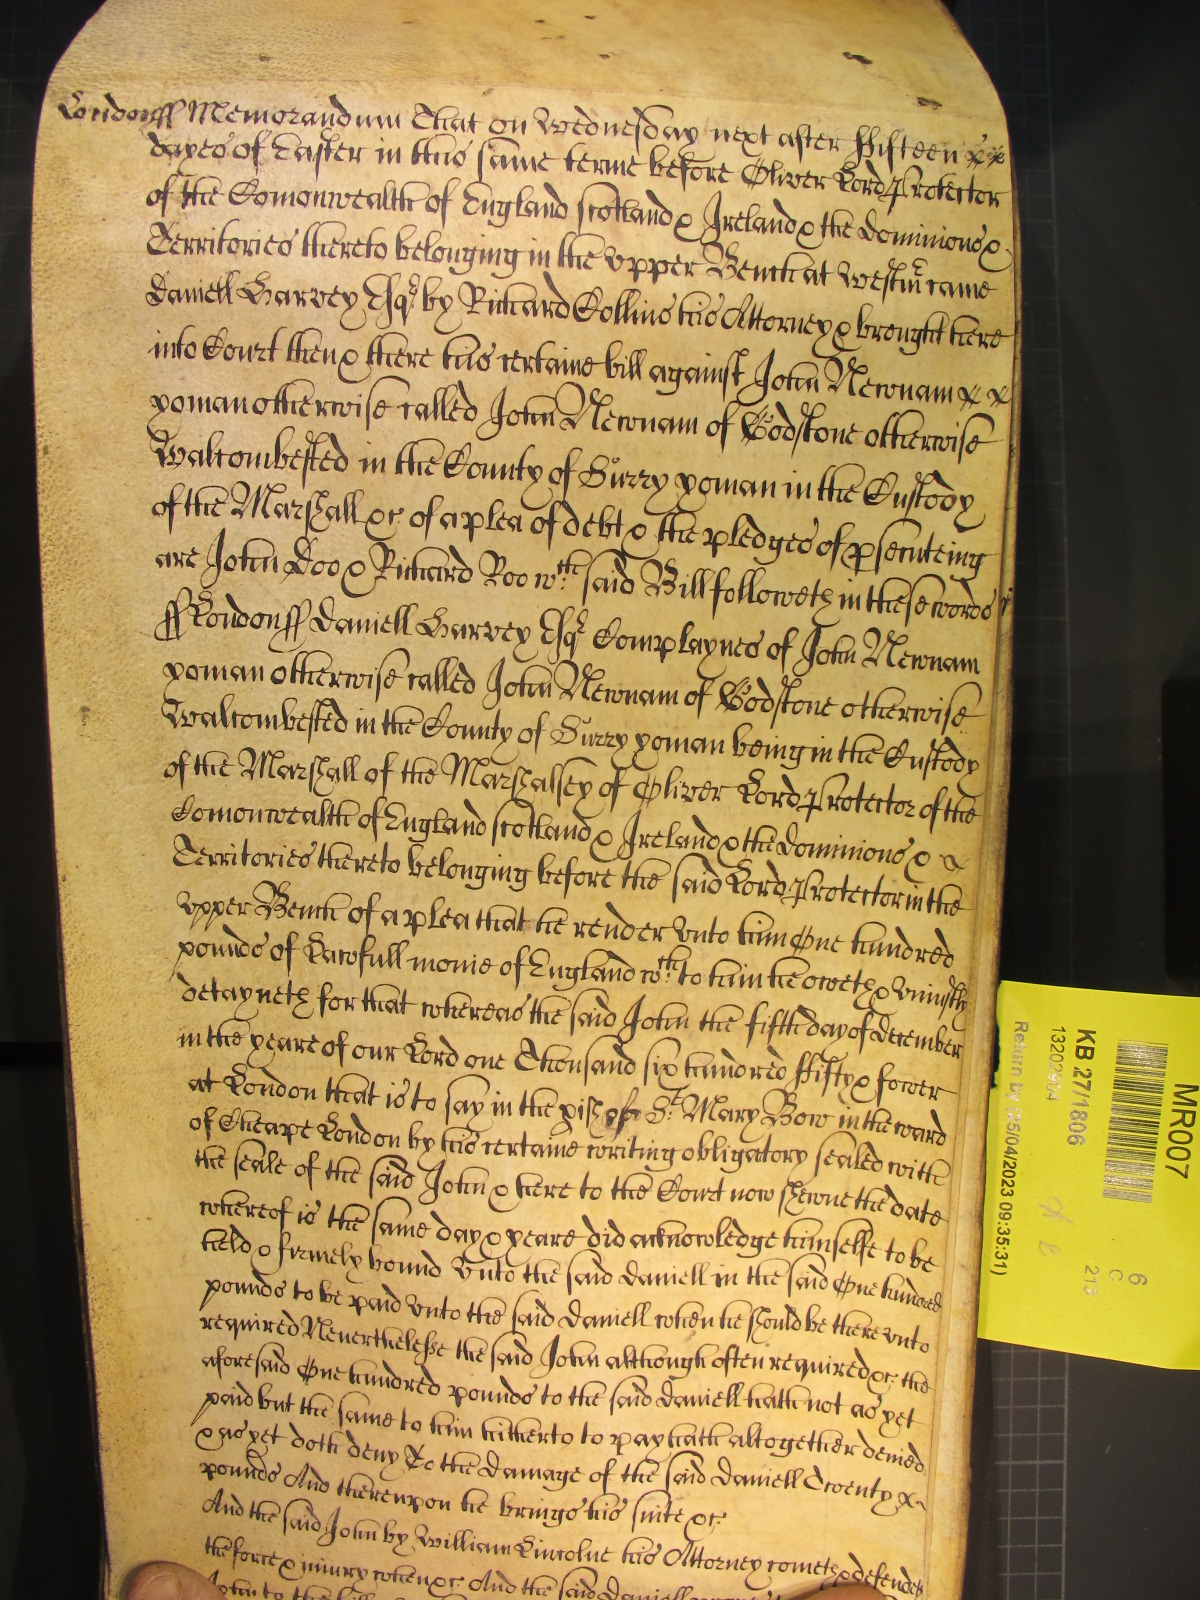 Londonss Memorandum That on Wednesday next after Fifteen
dayes of Easter in this same terme before Oliver Lord Protector
of the Comonwealth of England Scotland & Ireland & the Dominions &
Territories thereto belonging in the upper Bench at Westmr came
Daniell Harvey Esqr by Richard Collins his Attorney & brought here
into Court then & there his certaine bill against John Newnam
yoman otherwise called John Newnam of Godstone otherwise
Walcombested in the County of Surry yoman in the Custody
of the Marshall &c of a plea of debt & the pledges of psecuteing
are John Doo & Richard Roo wth said Bill followeth in these words
ss Londonss Daniell Harvey Esqr Complaynes of John Newnam
yoman otherwise called John Newnam of Godstone otherwise
Walcombested in the County of Surry yoman being in the Custody
of the Marshall of the Marshalsey of Oliver Lord Protector of the
Comonwealth of England Scotland & Ireland & the Dominions &
Territories thereto belonging before the said Lord Protector in the
upper Bench of a plea that he render unto him One hundred
pounds of Lawfull monie of England wth to him he oweth & uniustly
detayneth for that whereas the said John the fifth day of December
in the yeare of our Lord one Thousand six hundred Fifty & fower
at London that is to say in the pish of St Mary Bow in the ward
of Cheape London by his certaine writing obligatory sealed with
the seale of the said John & here to the Court now shewne the date
whereof is the same day & yeare did acknowledge himselfe to be
held & firmely bound unto the said Daniell in the said One hundred
pounds to be paid unto the said Daniell when he should be thereunto
required Neverthelesse the said John although often required &c the
aforesaid One hundred pounds to the said Daniell hath not as yet
paid but the same to him hitherto to pay hath altogether denied
& as yet doth deny To the damage of the said Daniell Twenty
pounds And thereupon he brings his suite &c
And the said John by William Lincolne his Attorney cometh & defendeth
the force & iniury when &c And the said Daniell
John to the bill
MR007
KB 27/1806
13202904
Return by (25/04/2023 09:35:31)
6
C
213